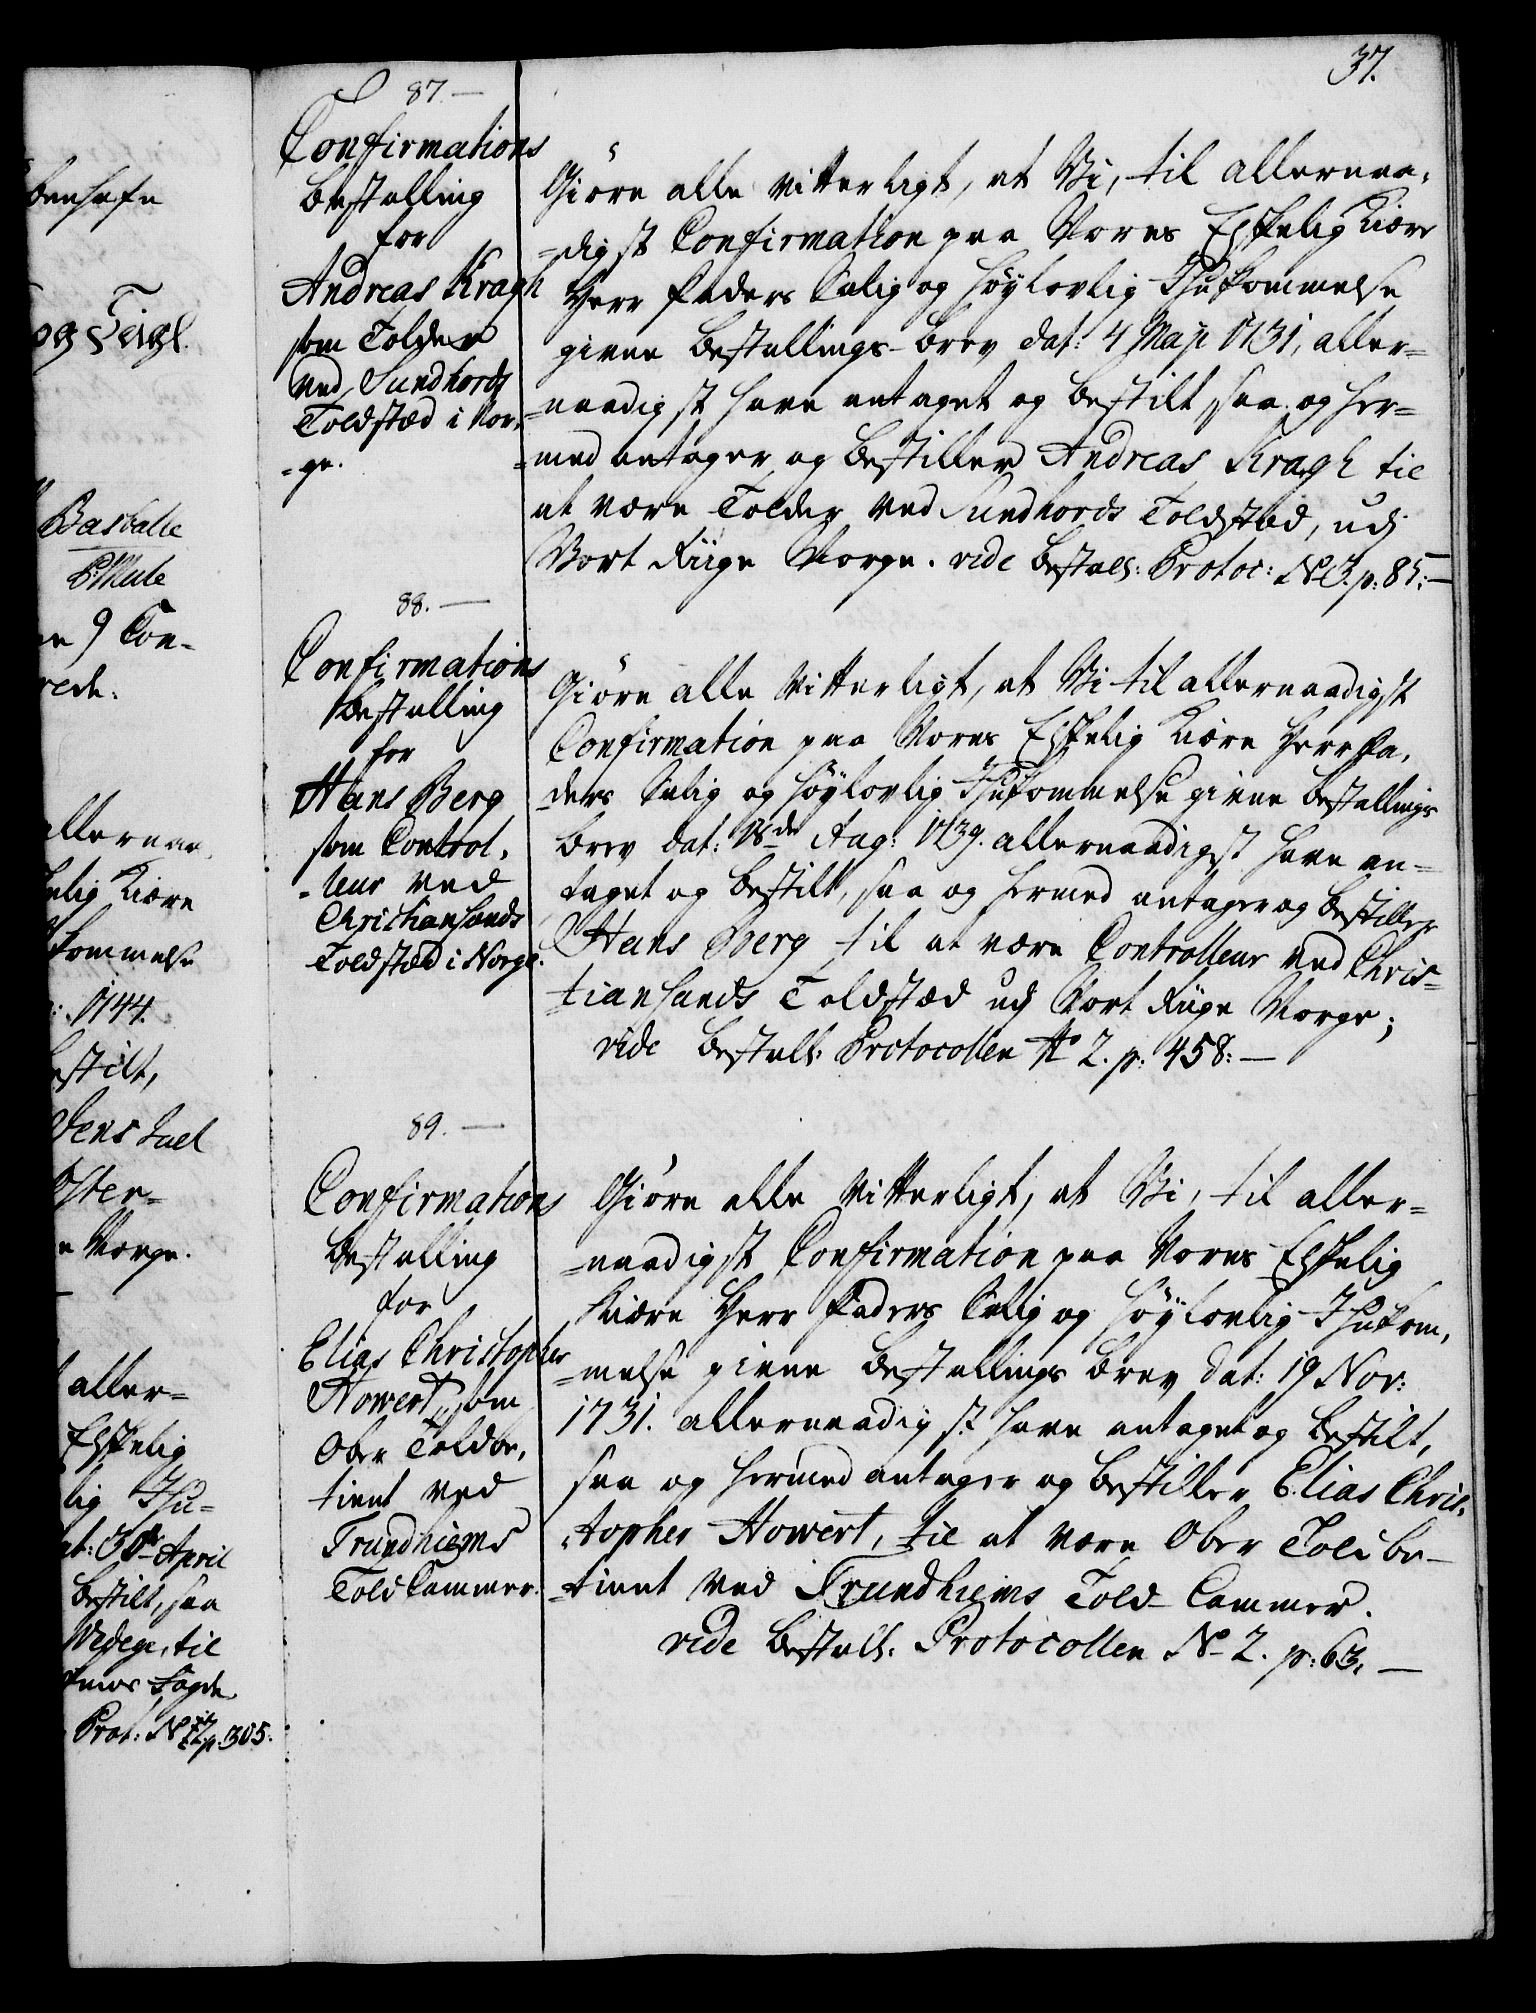 37.
87.
Confirmations
bestalling
for
Andreas Kragh
som Tolder
ved Sundhords
Toldstæd i Nor-
-ge.
Giöre alle vitterligt, at Vi, til allernaa-
-digst Confirmation paa Vores Elskelig Kiere
Herr Faders Salig og Höylovlig Ihukommelse
givne bestallings-brev dat: 4 Maji 1731, aller-
-naadigst have antaget og bestilt, saa og her-
-med antager og bestiller Andreas Kragh til
at være Tolder ved Sundhords Toldstæd, udj
Vort Riige Norge. vide bestall: Protoc: No 3. p: 85:
88.
Confirmations
bestalling
for
Hans Berg
som Control-
-leur ved
Christiansands
Toldstæd i Norge.
Giöre alle vitterligt, at Vi til allernaadigst
Confirmation paa Vores Elskelig Kiære Herr Fa-
-ders Salig og Höylovlig Ihukommelse givne bestallings
brev dat: Aug: 1739. allernaadigst have an-
taget og bestilt, saa og hermed antager og bestiller
Hans Berg til at være Controlleur ved Chris-
-tiansands Toldstæd udj Vort Riige Norge;
vide bestall: Protocollen No 2. p: 458:
89.
Confirmations
bestalling
for
Elias Christopher
Howert, som
Ober Toldbe-
tient ved
Trundhiems
Told Cammer.
Giöre alle vitterligt, at Vi, til aller-
-naadigst Confirmation paa Vores Elskelig
Kiære Herr Faders Salig og Höylovlig Ihukom-
-melse givne bestallings brev dat: 19 Nov:
1731. allernaadigst have antaget og bestilt,
saa og hermed antager og bestiller Elias Chris-
-topher Howert, til at være Ober Toldbe-
-tient ved Trundhiems Told-Cammer.
vide bestall: Protocollen No 2. p: 63.
og Teigl.
P: Mule
9 Con-
allernaa-
Kiære
kommelse
1744.
bestilt,
Jens Juel
Norge.
aller-
Elskelig
April
bestilt, saa
til
Prot: p. 305.